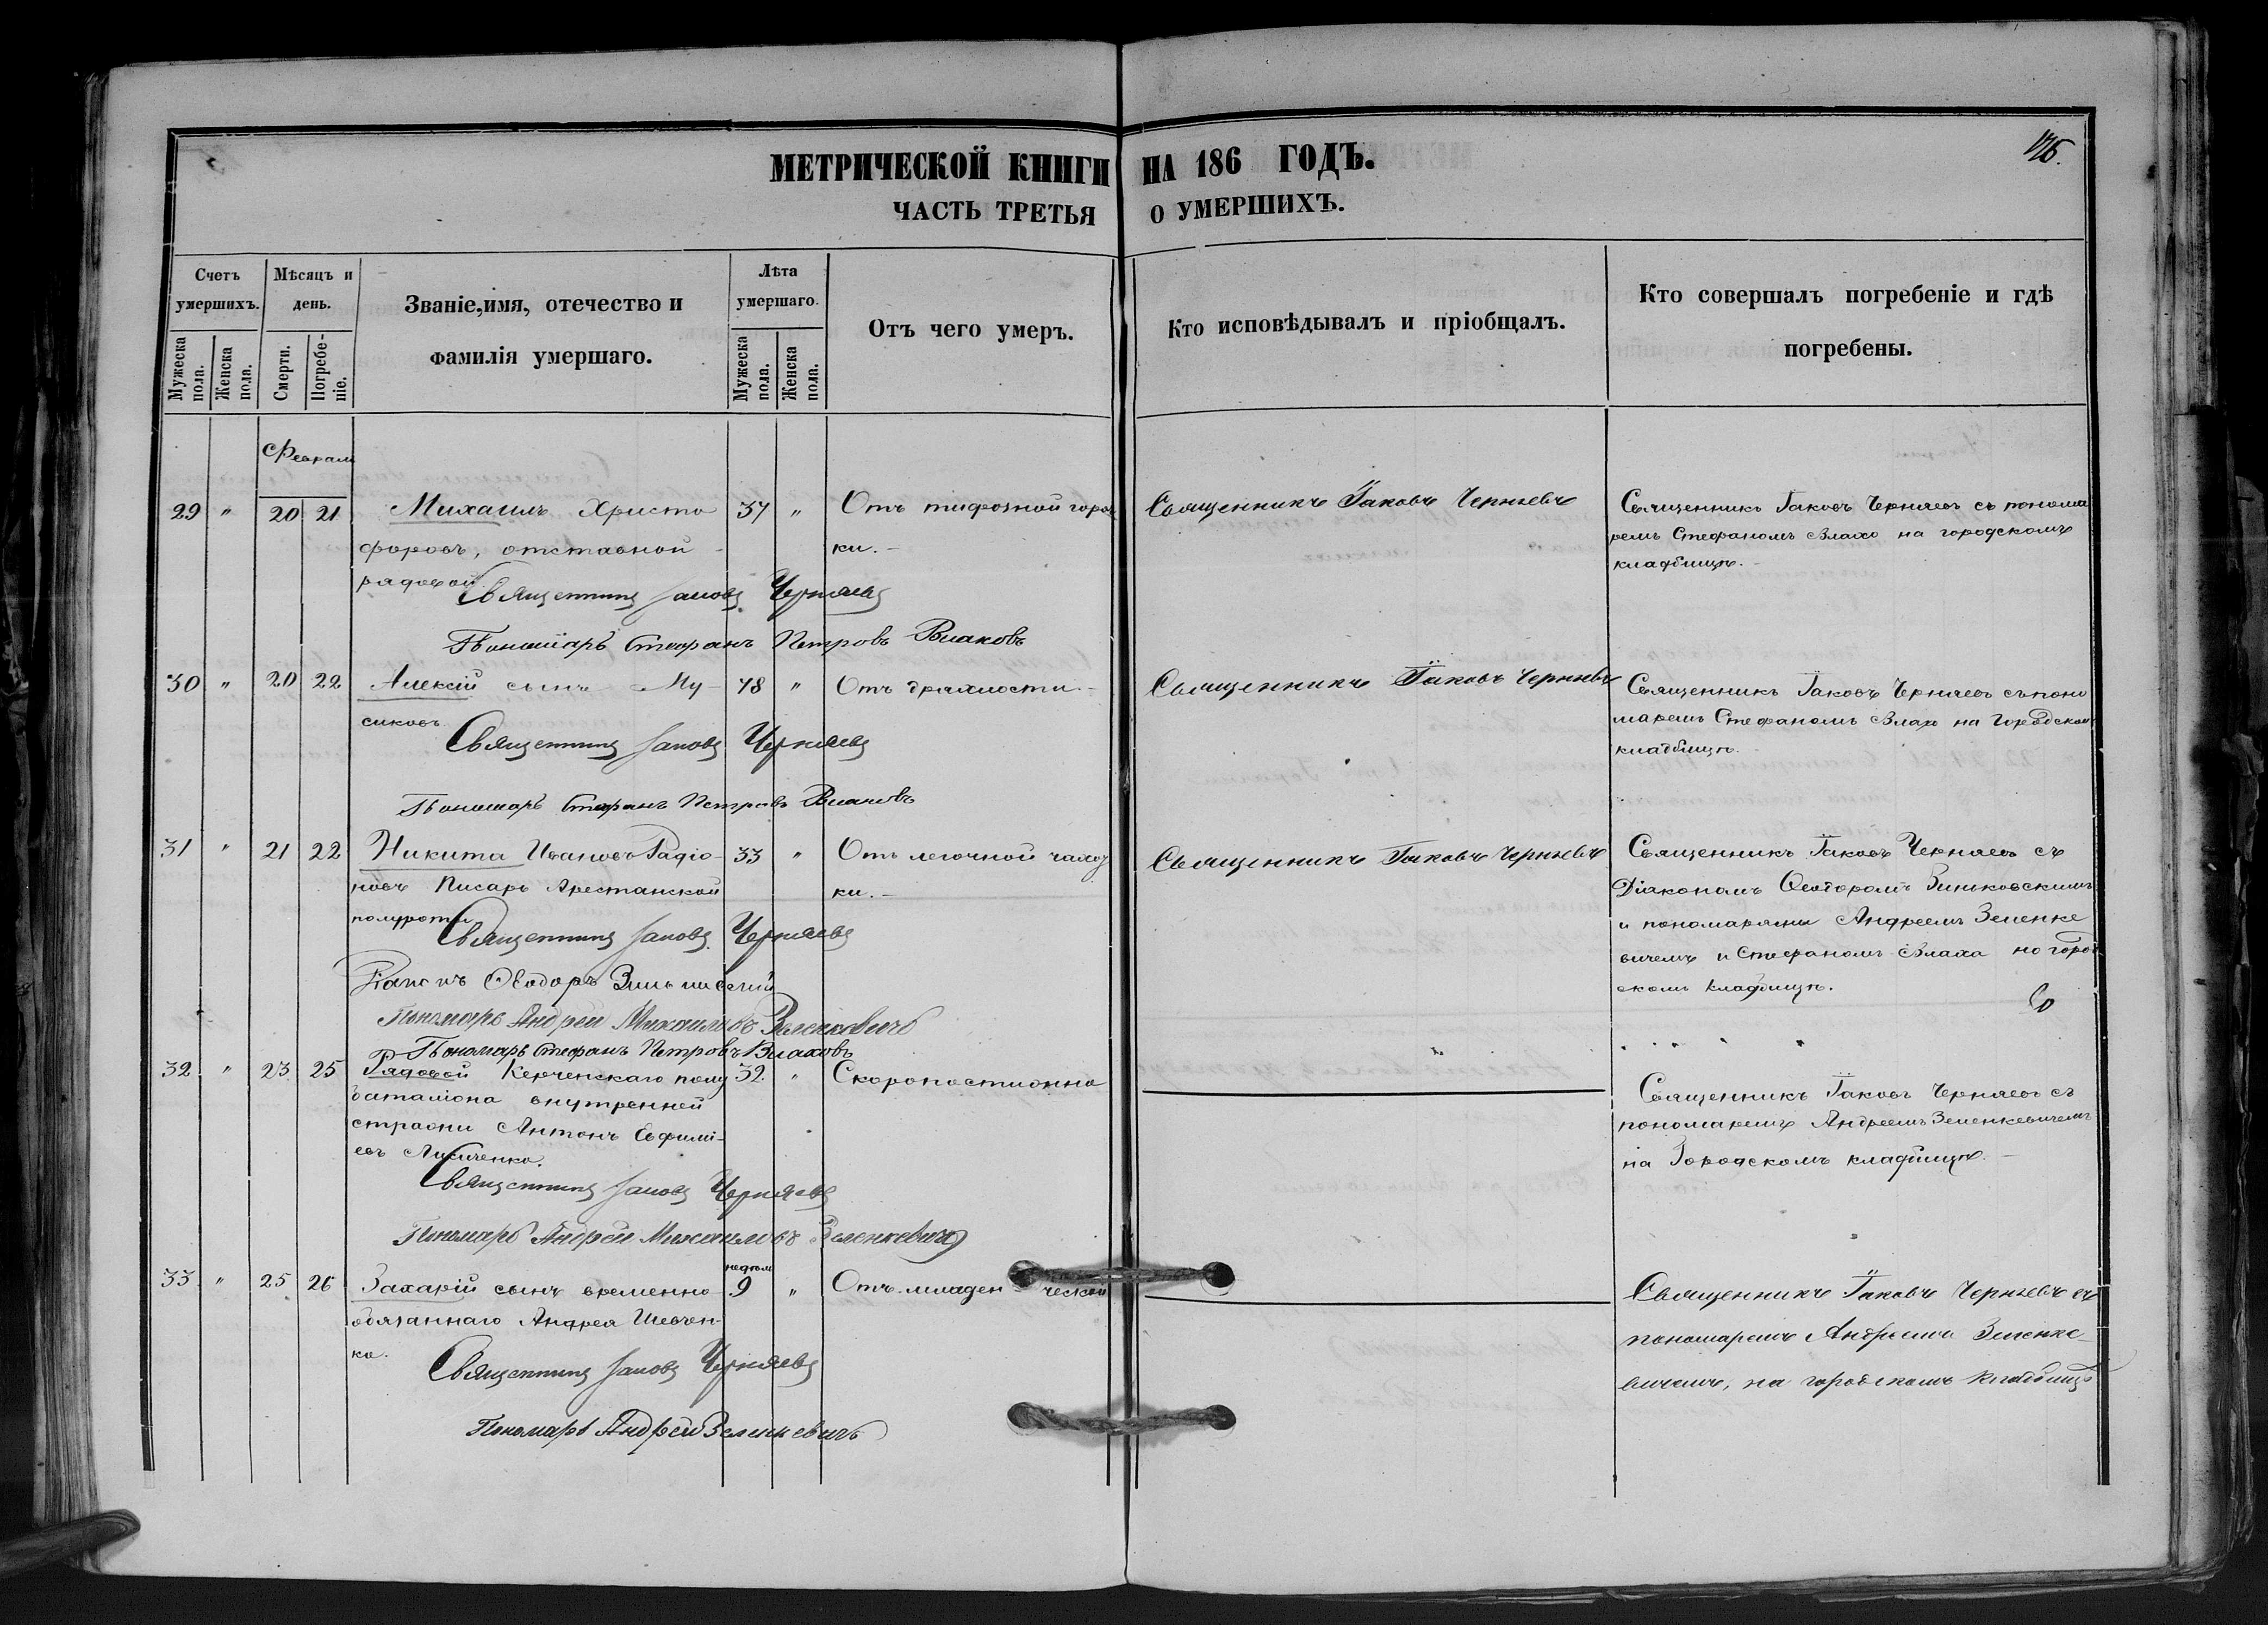 МЕТРИЧЕСКОЙ КНИГИ НА 186 ГОДЪ.
ЧАСТЬ ТРЕТЬЯ О УМЕРШИХЪ.
Счетъ умершихъ.
Мужеска пола.
Женска пола.
Мѣсяцъ и день.
Смерти.
Погребе-
ніе.
Званіе,имя, отечество и
фамилія умершаго.
Лѣта умершаго.
Мужеска пола.
Женска пола.
Отъ чего умеръ.
Кто исповѣдывалъ и пріобщалъ.
Кто совершалъ погребеніе и гдѣ
погребены.
Февраля
29 " 20 21 Михаилъ Христо 37 " Отъ тифозной горяч Священникъ Іаковъ Черняевъ Священникъ Іаковъ Черняевъ съ понома
форовъ, отставной ки. ремъ Стефаномъ Влахо на городскомъ
рядовой кладбищѣ.
Священникъ Іаковъ Черняевъ
Пономарь Стефанъ Петровъ Влаховъ
30 " 20 22 Алексій сынъ Му- 78 " Отъ дряхлости. Священникъ Іаковъ Черняевъ Священникъ Іаковъ Черняевъ съ поно
сиковъ маремъ Стефаномъ Влахо на Городском
Священникъ Іаковъ Черняевъ кладбищѣ.
Пономарь Стефанъ Петровъ Влаховъ
31 " 21 22 Никита Ивановъ Радіо- 33 " Отъ легочной чахот Священникъ Іаковъ Черняевъ Священникъ Іаковъ Черняевъ съ
новъ Писарь Арестанской ки. Діакономъ Ѳеодоромъ Зиньковскимъ
полуроты и пономарями Андреемъ Зеленке
Священникъ Іаковъ Черняевъ вичемъ и Стефаномъ Влаха на город
Діаконъ Ѳеодоръ Зиньковскій скомъ кладбищѣ.
Пономарь Андрей Михаиловъ Зеленкевичъ
Пономарь Стефанъ Петровъ Влаховъ
32 " 23 25 Рядовой Керченскаго полу 32. " Скоропостижно Священникъ Іаковъ Черняевъ съ
баталіона внутренней пономаремъ Андреемъ Зеленкевичемъ
стражи Антонъ Евфимі- на Городскомъ кладбищѣ.
евъ
Священникъ Іаковъ Черняевъ
Пономарь Андрей Михаиловъ Зеленкевичъ
недѣль
33 " 25 26 Захарій сынъ временно 9 " Отъ младенческой Священникъ Іаковъ Черняевъ съ
обязаннаго Андрея Шевчен- пономаремъ Андреемъ Зеленке
ка. вичемъ, на городскомъ кладбищѣ
Священникъ Іаковъ Черняевъ
Пономарь Андрей Зеленкевичъ